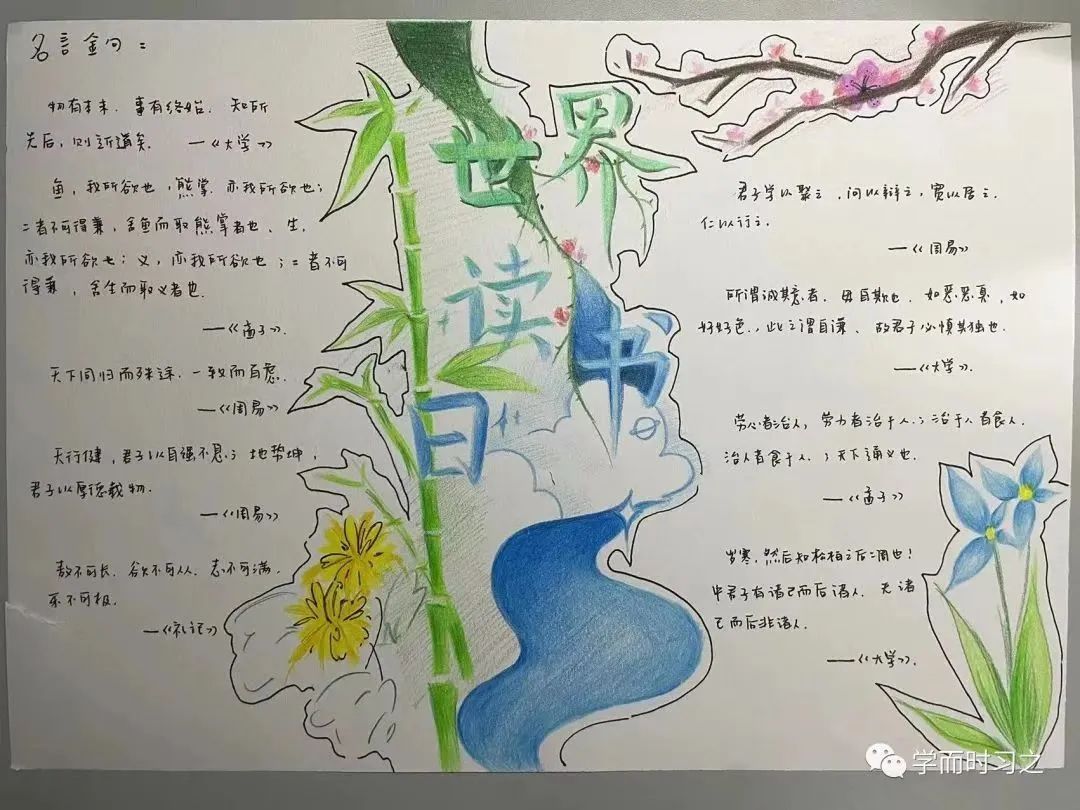 名言金句：
物有本末．事有终始．知所
先后，则近道矣．—《大学》
鱼，我所欲也，熊掌．亦我所欲也；
二者不可得兼，舍鱼而取熊掌者也、生．
亦我所欲也；义，亦我所欲也；二者不可
得兼，舍生而取义者也．
—《孟子》．
天下同归而殊途．一致而百虑．
—《周易》
天行健，君子以自强不息；地势坤，
君子以厚德载物．
—《周易》
敖不可长．欲不可从．志不可满．
乐不可极．
—《礼记》
世界
读书
日
君子学以聚之，问以辩之，宽以居之．
仁以行之．
—《周易》
所谓诚其意者．毋自欺也．如恶恶臭，如
好好色．，此之谓自谦、故君子必慎其独也．
—《大学》．
劳心者治人，劳力者治于人．；治于人者食人．
治人者食于人．；天下通义也．
—《孟子》
岁寒，然后知松柏之后凋也！
君子有诸己而后诸人．无诸
己而后非诸人．
—《大学》．
学而时习之